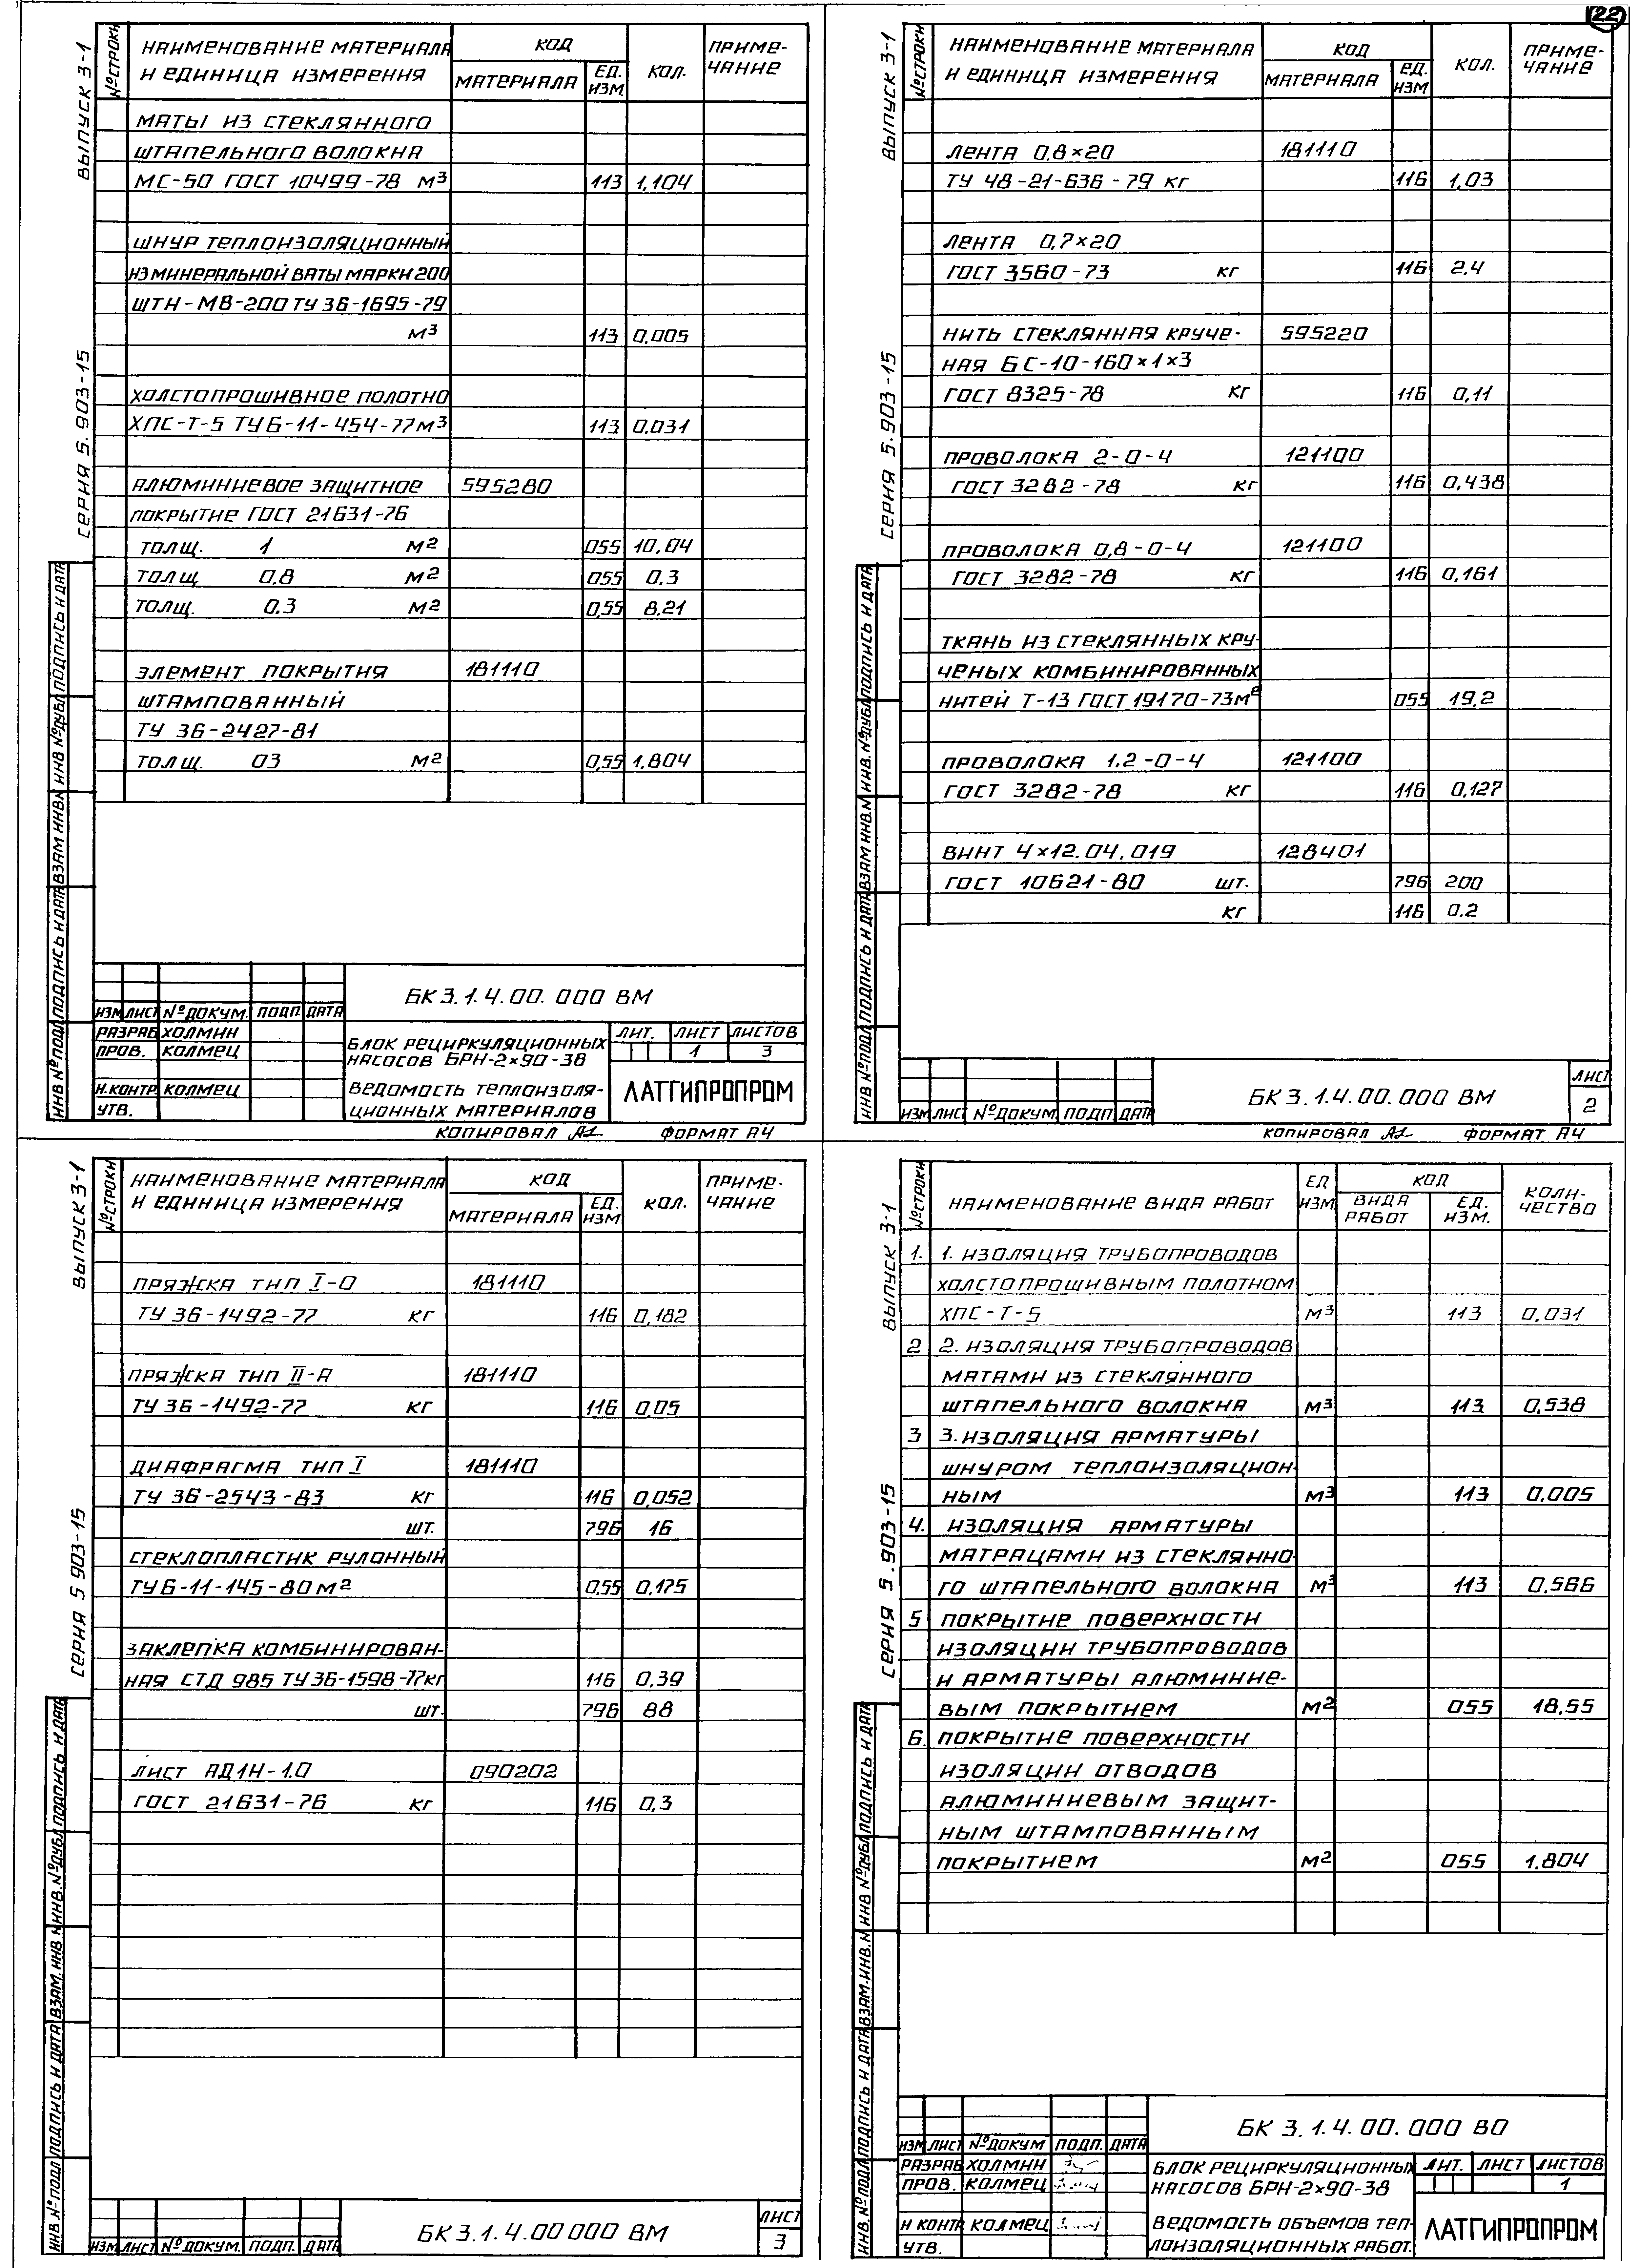 22
ВЫПУСК 3-1
СЕРИЯ 5.903-15
№ СТРОКИ
НАИМЕНОВАНИЕ МАТЕРИАЛА
И ЕДИНИЦА ИЗМЕРЕНИЯ
КОД
МАТЕРИАЛА
ЕД.
ИЗМ.
КОЛ.
ПРИМЕ-
ЧАНИЕ
МАТЫ ИЗ СТЕКЛЯННОГО
ШТАПЕЛЬНОГО ВОЛОКНА
МС-50 ГОСТ 10499-78 М³ 113 1,104
ШНУР ТЕПЛОИЗОЛЯЦИОННЫЙ
ИЗ МИНЕРАЛЬНОЙ ВАТЫ МАРКИ 200
ШТН-МВ-200 ТУ 36-1695-79
М³ 113 0,005
ХОЛСТОПРОШИВНОЕ ПОЛОТНО
ХПС-Т-5 ТУ6-11-454-77 М³ 113 0.031
АЛЮМИНИЕВОЕ ЗАЩИТНОЕ 595280
ПОКРЫТИЕ ГОСТ 21631-76
ТОЛЩ. 1 М² 055 10,04
ТОЛЩ 0,8 М² 055 0,3
ТОЛЩ. 0.3 М² 0,55 8,21
ЭЛЕМЕНТ ПОКРЫТИЯ 181110
ШТАМПОВАННЫЙ
ТУ 36-2427-81
ТОЛЩ. 03 М² 0,55 1,804
ИНВ № ПОДЛ ПОДПИСЬ И ДАТА ВЗАМ ИНВ.№ ИНВ №ДУБЛ ПОДПИСЬ И ДАТА
БК 3.1.4.00.000 ВМ
ИЗМ ЛИСТ № ДОКУМ. ПОДП ДАТА
РАЗРАБ ХОЛМИН
ПРОВ. КОЛМЕЦ
Н.КОНТР КОЛМЕЦ
УТВ.
БЛОК РЕЦИРКУЛЯЦИОННЫХ
НАСОСОВ БРН-2×90-38
ВЕДОМОСТЬ ТЕПЛОИЗОЛЯ-
ЦИОННЫХ МАТЕРИАЛОВ
ЛИТ. ЛИСТ ЛИСТОВ
1 3
ЛАТГИПРОПРОМ
КОПИРОВАЛ ФОРМАТ А4
ВЫПУСК 3-1
СЕРИЯ 5.903-15
№ СТРОКИ
НАИМЕНОВАНИЕ МАТЕРИАЛА
И ЕДИНИЦА ИЗМЕРЕНИЯ
КОД
МАТЕРИАЛА
ЕД.
ИЗМ
КОЛ.
ПРИМЕ-
ЧАНИЕ
ЛЕНТА 0,8×20 181110
ТУ 48-21-636-79 КГ 116 1,03
ЛЕНТА 0,7×20
ГОСТ 3560-73 КГ 116 2,4
НИТЬ СТЕКЛЯННАЯ КРУЧЕ- 595220
НАЯ БС-10-160×1×3
ГОСТ 8325-78 КГ 116 0,11
ПРОВОЛОКА 2-0-4 121100
ГОСТ 3282-78 КГ 116 0,438
ПРОВОЛОКА 0,8-0-4 121100
ГОСТ 3282-78 КГ 116 0,161
ТКАНЬ ИЗ СТЕКЛЯННЫХ КРУ-
ЧЕНЫХ КОМБИНИРОВАННЫХ
НИТЕЙ Т-13 ГОСТ 19170-73 М² 055 19,2
ПРОВОЛОКА 1.2-0-4 121100
ГОСТ 3282-78 КГ 116 0,127
ВИНТ 4×12.04.019 128401
ГОСТ 10621-80 ШТ. 796 200
КГ 116 0.2
ИНВ № ПОДЛ ПОДПИСЬ И ДАТА ВЗАМ ИНВ.№ ИНВ. №ДУБЛ ПОДПИСЬ И ДАТА
ИЗМ ЛИСТ № ДОКУМ ПОДП ДАТА
БК 3.1.4.00.000 ВМ
ЛИСТ
2
КОПИРОВАЛ ФОРМАТ А4
ВЫПУСК 3-1
СЕРИЯ 5 903-15
№ СТРОКИ
НАИМЕНОВАНИЕ МАТЕРИАЛА
И ЕДИНИЦА ИЗМЕРЕНИЯ
КОД
МАТЕРИАЛА
ЕД.
ИЗМ
КОЛ.
ПРИМЕ-
ЧАНИЕ
ПРЯЖКА ТИП I-О 181110
ТУ 36-1492-77 КГ 116 0,182
ПРЯЖКА ТИП II-А 181110
ТУ 36-1492-77 КГ 116 0,05
ДИАФРАГМА ТИП I 181110
ТУ 36-2543-83 КГ 116 0,052
ШТ. 796 16
СТЕКЛОПЛАСТИК РУЛОННЫЙ
ТУ6-11-145-80 М² 0.55 0,175
ЗАКЛЕПКА КОМБИНИРОВАН-
НАЯ СТД 985 ТУ36-1598-77 КГ 116 0,39
ШТ. 796 88
ЛИСТ АД1Н-1.0 090202
ГОСТ 21631-76 КГ 116 0,3
ИНВ. № ПОДЛ ПОДПИСЬ И ДАТА ВЗАМ. ИНВ № ИНВ. №ДУБЛ ПОДПИСЬ И ДАТА
ИЗМ ЛИСТ № ДОКУМ. ПОДП. ДАТА
БК 3.1.4.00 000 ВМ
ЛИСТ
3
ВЫПУСК 3-1
СЕРИЯ 5.903-15
№ СТРОКИ
НАИМЕНОВАНИЕ ВИДА РАБОТ
ЕД
ИЗМ.
КОД
ВИДА
РАБОТ
ЕД.
ИЗМ.
КОЛИ-
ЧЕСТВО
1. 1. ИЗОЛЯЦИЯ ТРУБОПРОВОДОВ
ХОЛСТОПРОШИВНЫМ ПОЛОТНОМ
ХПС-Т-5 М³ 113 0,031
2 2. ИЗОЛЯЦИЯ ТРУБОПРОВОДОВ
МАТАМИ ИЗ СТЕКЛЯННОГО
ШТАПЕЛЬНОГО ВОЛОКНА М³ 113 0,538
3 3. ИЗОЛЯЦИЯ АРМАТУРЫ
ШНУРОМ ТЕПЛОИЗОЛЯЦИОН-
НЫМ М³ 113 0,005
4. ИЗОЛЯЦИЯ АРМАТУРЫ
МАТРАЦАМИ ИЗ СТЕКЛЯННО-
ГО ШТАПЕЛЬНОГО ВОЛОКНА М³ 113 0,566
5 ПОКРЫТИЕ ПОВЕРХНОСТИ
ИЗОЛЯЦИИ ТРУБОПРОВОДОВ
И АРМАТУРЫ АЛЮМИНИЕ-
ВЫМ ПОКРЫТИЕМ М² 055 18,55
6. ПОКРЫТИЕ ПОВЕРХНОСТИ
ИЗОЛЯЦИИ ОТВОДОВ
АЛЮМИНИЕВЫМ ЗАЩИТ-
НЫМ ШТАМПОВАННЫМ
ПОКРЫТИЕМ М² 055 1.804
ИНВ. № ПОДЛ ПОДПИСЬ И ДАТА ВЗАМ. ИНВ. № ИНВ №ДУБЛ ПОДПИСЬ И ДАТА
БК 3.1.4.00.000 ВО
ИЗМ ЛИСТ № ДОКУМ ПОДП. ДАТА
РАЗРАБ ХОЛМИН
ПРОВ. КОЛМЕЦ
Н КОНТР КОЛМЕЦ
УТВ.
БЛОК РЕЦИРКУЛЯЦИОННЫХ
НАСОСОВ БРН-2×90-38
ВЕДОМОСТЬ ОБЪЕМОВ ТЕП-
ЛОИЗОЛЯЦИОННЫХ РАБОТ.
ЛИТ. ЛИСТ ЛИСТОВ
1
ЛАТГИПРОПРОМ